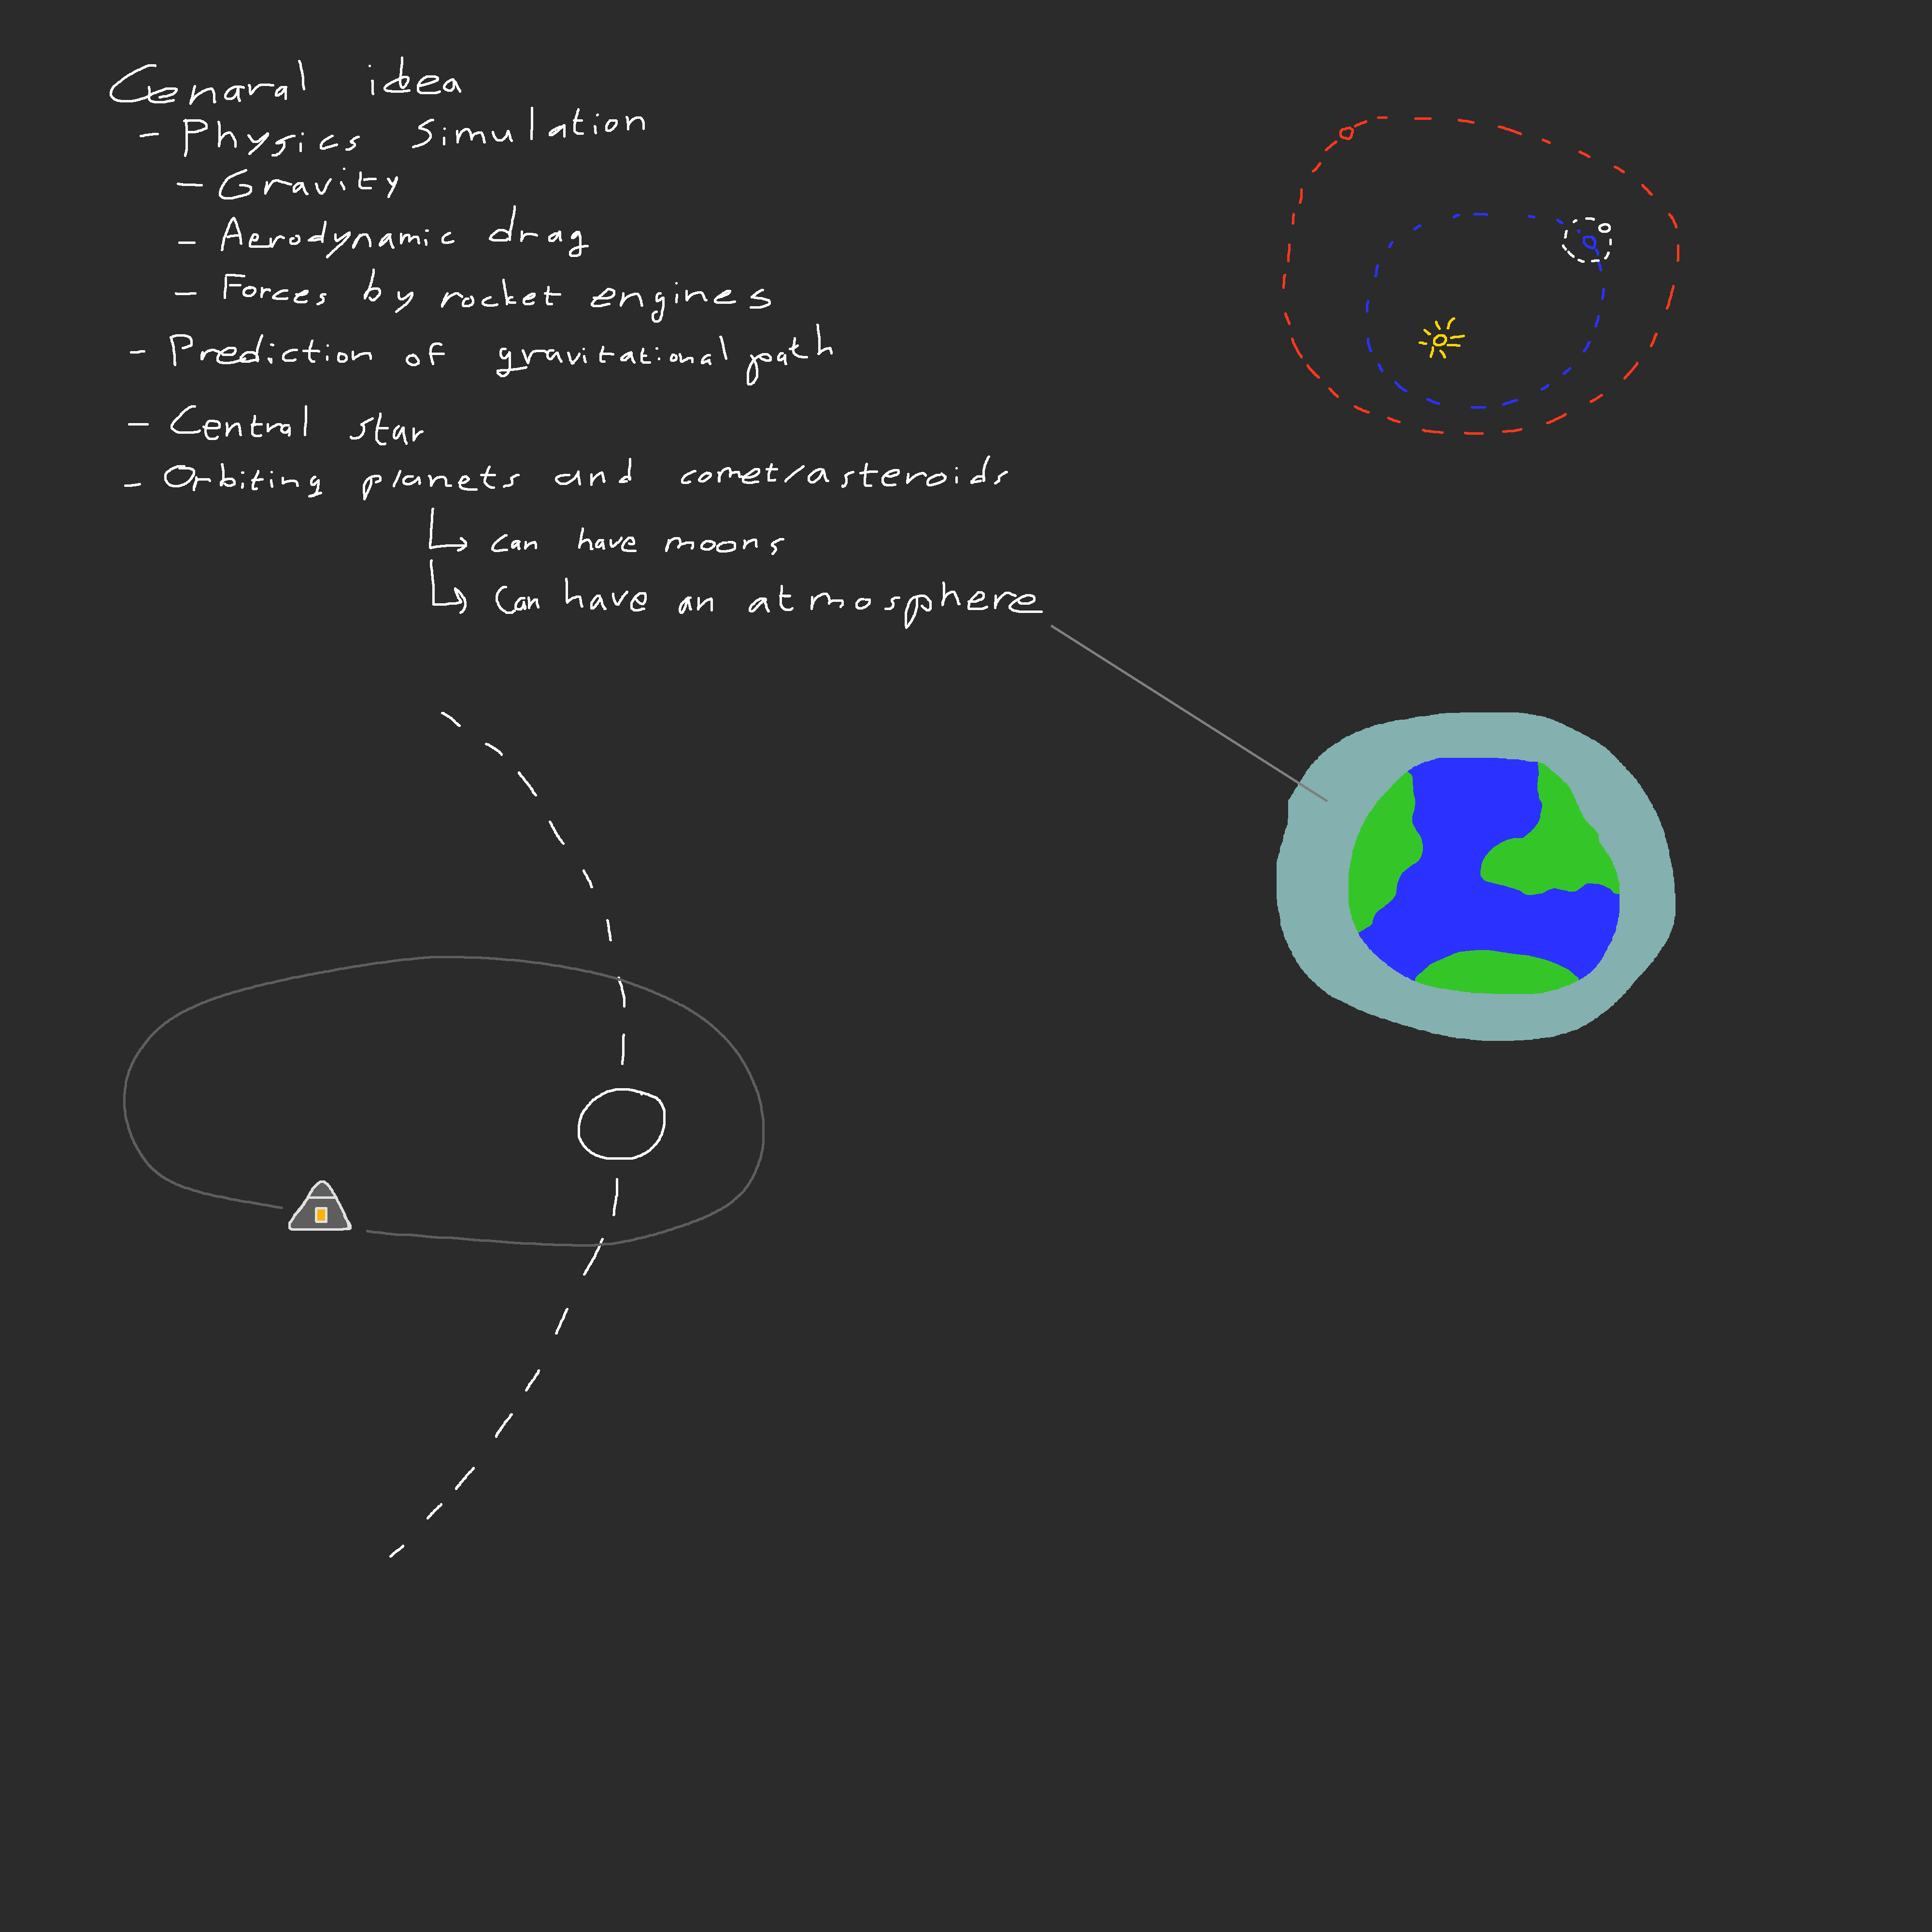 Genaral idea
- Physics simulation
- Gravity
- Aerodynamic drag
- Forces by rocket engines
- Prediction of gravitational path
- Central star
- Orbiting planets and comet/asteroids
↳ can have moons
↳ Can have an atmosphere